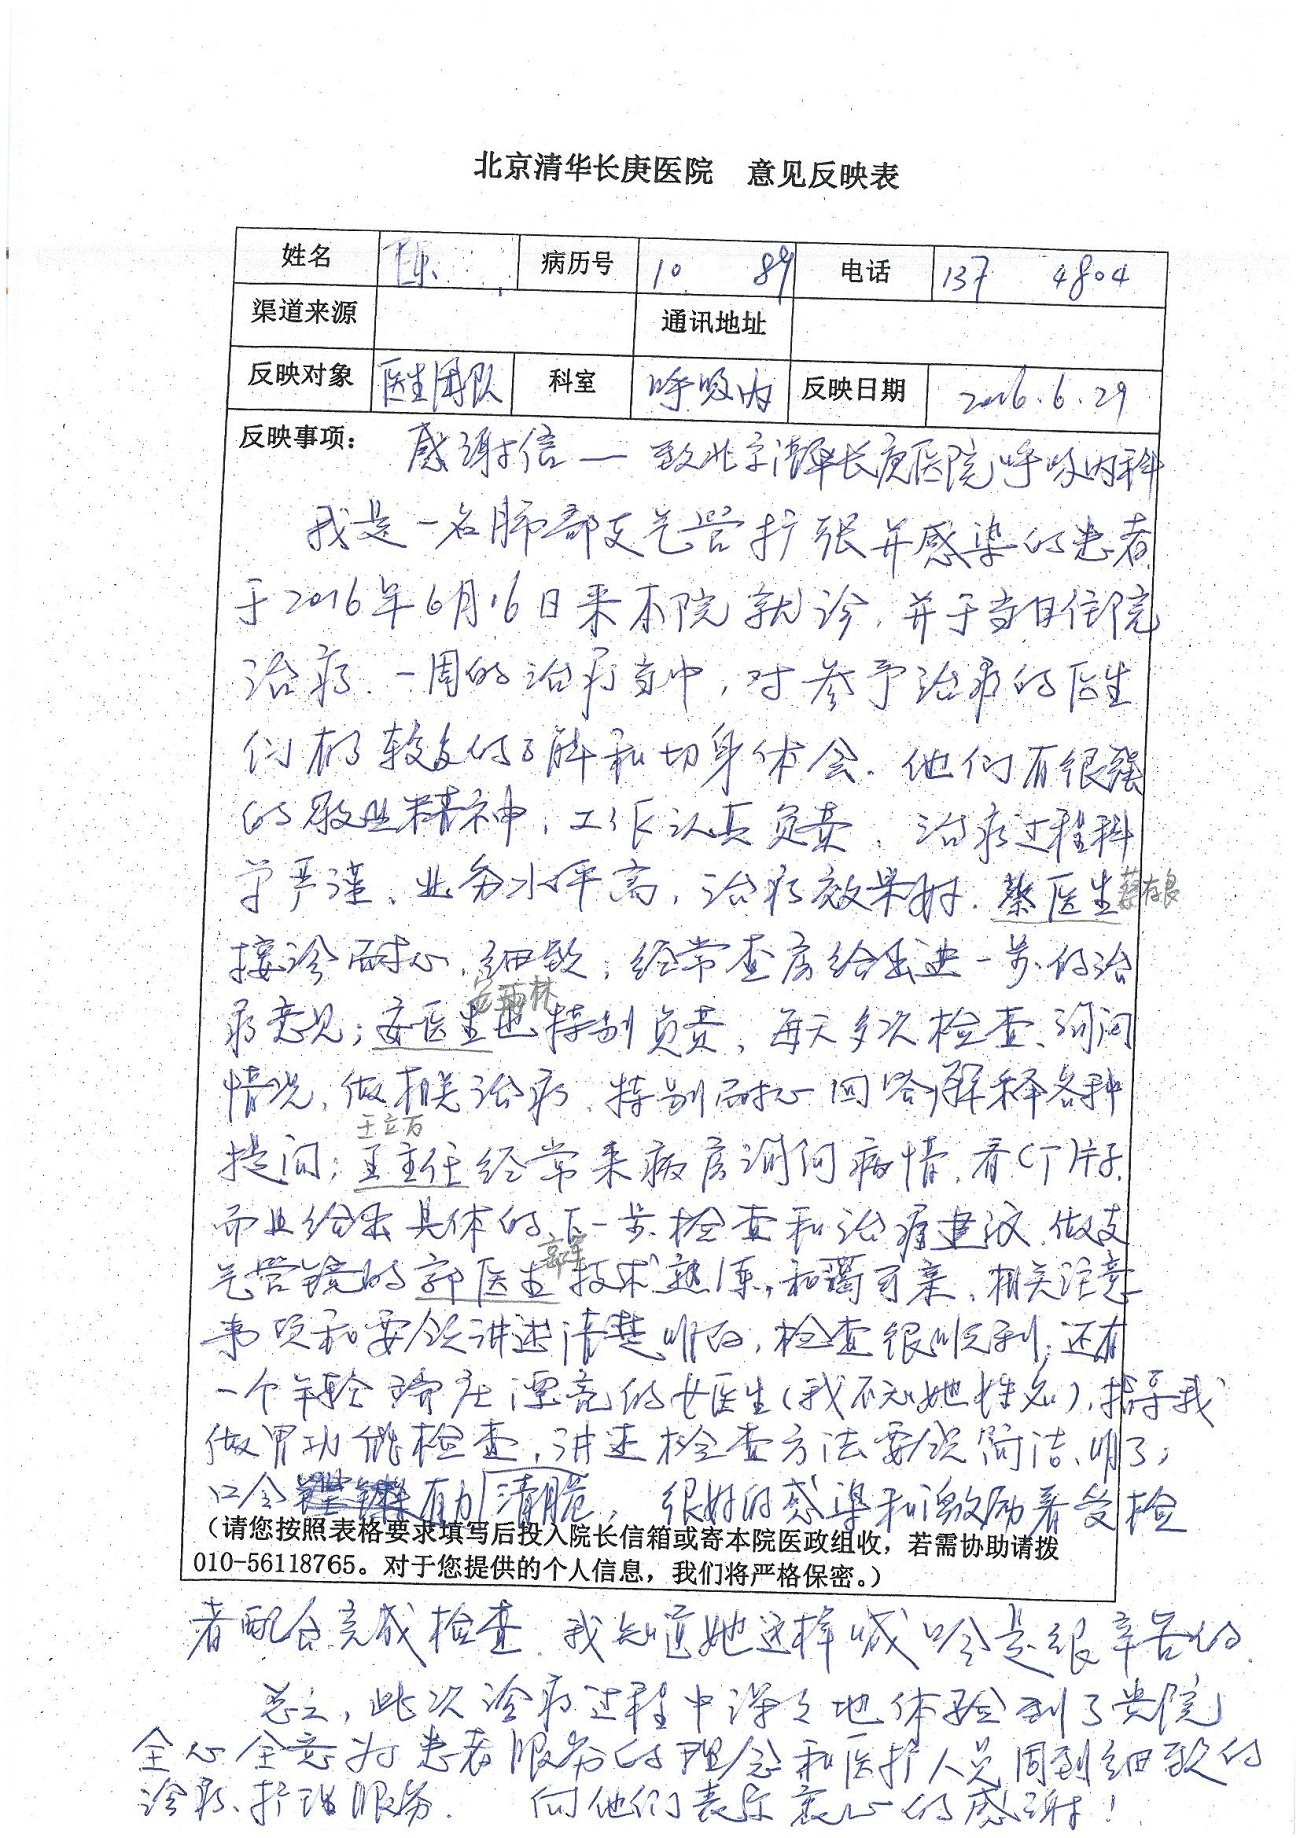 北京清华长庚医院 意见反映表
姓名 陈 病历号 10 89 电话 137 4804
渠道来源 通讯地址
反映对象 医生团队 科室 呼吸内 反映日期 2016.6.29
反映事项： 感谢信—致北京清华长庚医院呼吸内科
我是一名肺部支气管扩张并感染的患者
于2016年6月16日来本院就诊，并于当日住院
治疗。一周的治疗当中，对参予治疗的医生
们有了较多的了解和切身体会。他们有很强
的敬业精神，工作认真负责，治疗过程科
学严谨、业务水平高，治疗效果好。蔡医生 蔡存良
接诊耐心、细致，经常查房给出进一步的治
安雨林
疗意见；安医生也特别负责，每天多次检查、询问
情况，做相关治疗，特别耐心回答解释各种
王立万
提问；王主任经常来病房询问病情，看CT片子，
而且给出具体的下一步检查和治疗建议。做支
郭军
气管镜的郭医生技术熟练，和蔼可亲，相关注意
事项和要领讲述清楚明白，检查很顺利；还有
一个年轻端庄漂亮的女医生（我不知她姓名），指导我
做胃功能检查，讲述检查方法要领简洁、明了，
口令有力清脆，很好的感染和激励着受检
（请您按照表格要求填写后投入院长信箱或寄本院医政组收，若需协助请拨
010-56118765。对于您提供的个人信息，我们将严格保密。）
者配合完成检查。我知道她这样喊口令是很辛苦的。
总之，此次诊疗过程中深深地体验到了贵院
全心全意为患者服务的理念和医护人员周到细致的
诊疗、护理服务。 向他们表示衷心的感谢！